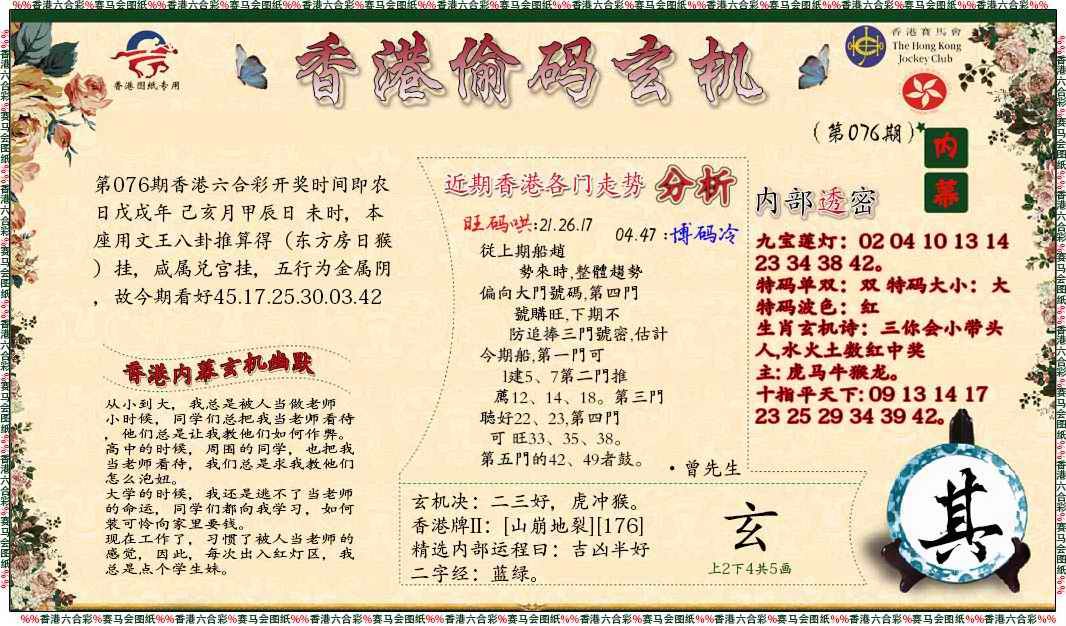 %%香港六合彩%赛马会图纸%%香港六合彩%赛马会图纸%%香港六合彩%赛马会图纸%%香港六合彩%赛马会图纸%%香港六合彩%赛马会图纸%%香港六合彩%%
香港图纸专用
香港偷码玄机
香港賽馬會
The Hong Kong
Jockey Club
（第076期）
内
幕
第076期香港六合彩开奖时间即农
日戊戌年 己亥月甲辰日 未时，本
座用文王八卦推算得（东方房日猴
）挂，咸属兑宫挂，五行为金属阴
，故今期看好45.17.25.30.03.42
香港内幕玄机幽默
从小到大，我总是被人当做老师
小时候，同学们总把我当老师看待
，他们总是让我教他们如何作弊。
高中的时候，周围的同学，也把我
当老师看待，我们总是求我教他们
怎么泡妞。
大学的时候，我还是逃不了当老师
的命运，同学们都向我学习，如何
装可怜向家里要钱。
现在工作了，习惯了被人当老师的
感觉，因此，每次出入红灯区，我
总是点个学生妹。
近期香港各门走势 分析
旺码哄:21.26.17
04.47 :博码冷
從上期船趙
勢來時,整體趨勢
偏向大門號碼,第四門
號購旺,下期不
防追捧三門號密,估計
今期船,第一門可
l建5、7第二門推
薦12、14、18。第三門
聴好22、23,第四門
可 旺33、35、38。
第五門的42、49者鼓。
·曾先生
内部透密
九宝莲灯：02 04 10 13 14
23 34 38 42。
特码单双：双 特码大小：大
特码波色：红
生肖玄机诗：三你会小带头
人,水火土数红中奖
主: 虎马牛猴龙。
十指平天下: 09 13 14 17
23 25 29 34 39 42。
玄机决：二三好，虎冲猴。
香港牌II：[山崩地裂][176]
精选内部运程曰：吉凶半好
二字经：蓝绿。
玄
上2下4共5画
其
%%香港六合彩%赛马会图纸%%香港六合彩%赛马会图纸%%香港六合彩%赛马会图纸%%香港六合彩%赛马会图纸%%香港六合彩%赛马会图纸%%香港六合彩%%